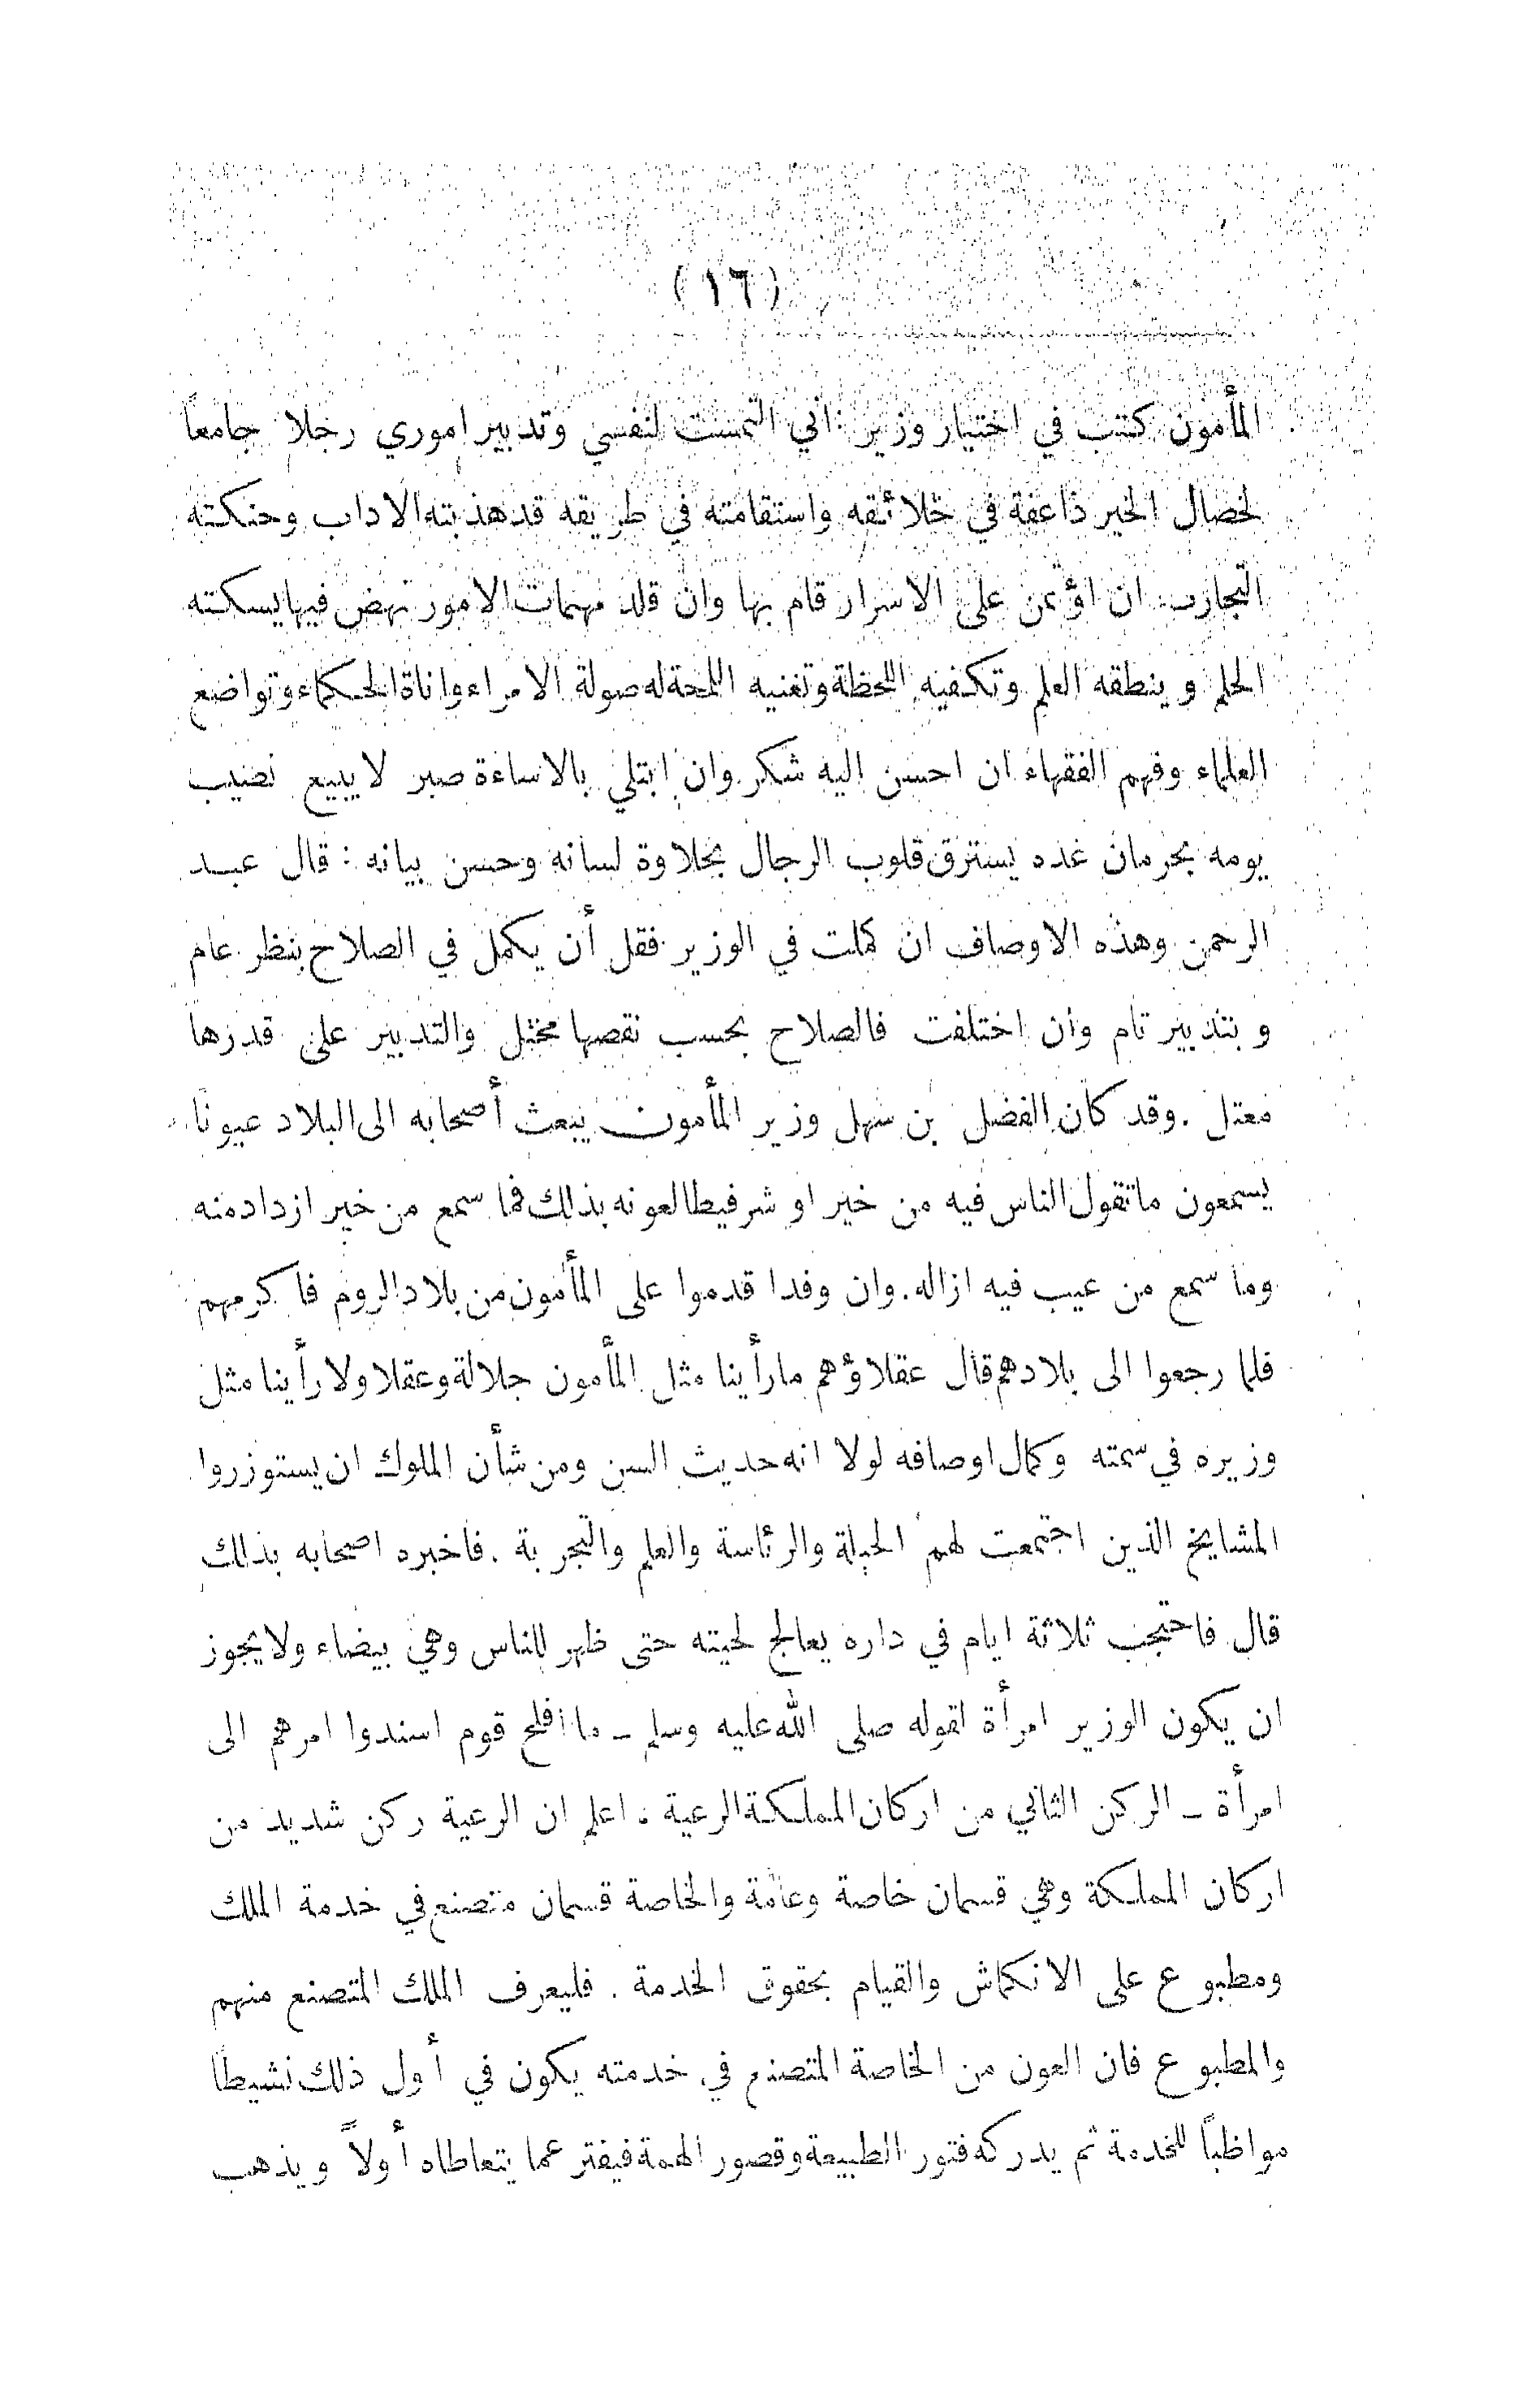 (١٦)
المأمون كتب في اختيار وزير : اني التمست لنفسي وتدبير اموري رجلا جامعاً
لخصال الخير ذا عفة في خلائقه واستقامته في طريقه قد هذبته الاداب وحنكته
التجارب ان اؤتمن على الاسرار قام بها وان قلد مهمات الامور نهض فيها يسكته
الحلم وينطقه العلم وتكفيه اللحظة وتغنيه اللمحة له صولة الامراء واناة الحكماء وتواضع
العلماء وفهم الفقهاء ان احسن اليه شكر وان ابتلي بالاساءة صبر لا يبيع نصيب
يومه بحرمان غده يسترق قلوب الرجال بحلاوة لسانه وحسن بيانه : قال عبد
الرحمن وهذه الاوصاف ان كملت في الوزير فقل أن يكمل في الصلاح بنظر عام
وبتدبير تام وان اختلفت فالصلاح بحسب نقصها مختل والتدبير على قدرها
معتل . وقد كان الفضل بن سهل وزير المأمون يبعث أصحابه الى البلاد عيونا
يسمعون ما تقول الناس فيه من خير او شر فيطالعونه بذلك فما سمع من خير ازداد منه
وما سمع من عيب فيه ازاله . وان وفدا قدموا على المأمون من بلاد الروم فاكرمهم
فلما رجعوا الى بلادهم قال عقلاؤهم ما رأينا مثل المأمون جلالة وعقلا ولا رأينا مثل
وزيره في سمته وكمال اوصافه لولا انه حديث السن ومن شأن الملوك ان يستوزروا
المشايخ الذين اجتمعت لهم الحيلة والرئاسة والعلم والتجربة . فاخبره اصحابه بذلك
قال فاحتجب ثلاثة ايام في داره يعالج لحيته حتى ظهر للناس وهي بيضاء ولا يجوز
ان يكون الوزير امرأة لقوله صلى الله عليه وسلم ــ ما افلح قوم اسندوا امرهم الى
امرأة ــ الركن الثاني من اركان المملكة الرعية . اعلم ان الرعية ركن شديد من
اركان المملكة وهي قسمان خاصة وعامة والخاصة قسمان متصنع في خدمة الملك
ومطبوع على الانكماش والقيام بحقوق الخدمة . فليعرف الملك المتصنع منهم
والمطبوع فان العون من الخاصة المتصنع في خدمته يكون في أول ذلك نشيطا
مواظباً للخدمة ثم يدركه فتور الطبيعة وقصور الهمة فيفتر عما يتعاطاه أولاً ويذهب